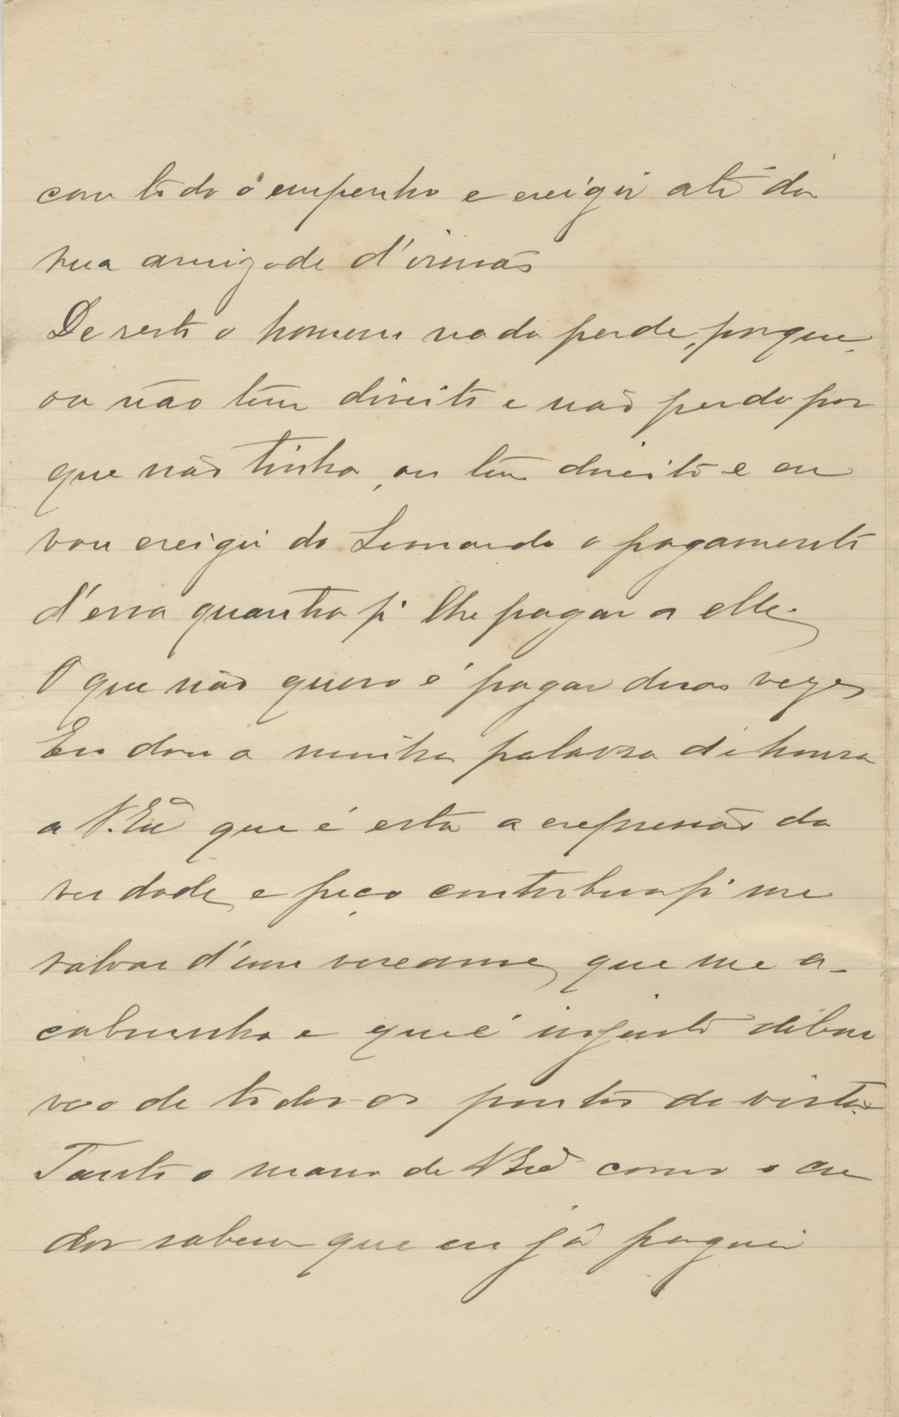 com todo o empenho e exigir até da
sua amizade d'irmãos
De resto o homem nada perde, porque,
ou não tem direito e não perde por
que não tinha, ou tem direito e eu
vou exigir do Leonardo o pagamento
d'essa quantia pª lhe pagar a elle.
O que não quero é pagar duas vezes
Eu dou a minha palavra de honra
a V. Exª que é esta a expressão da
verdade, e peço contribua pª me
salvar d'um vexame, que me a-
cabrunha e que é injusto debai
xo de todos os pontos de vista.
Tanto o mano de V Exª como o cre
dor sabem que eu já paguei